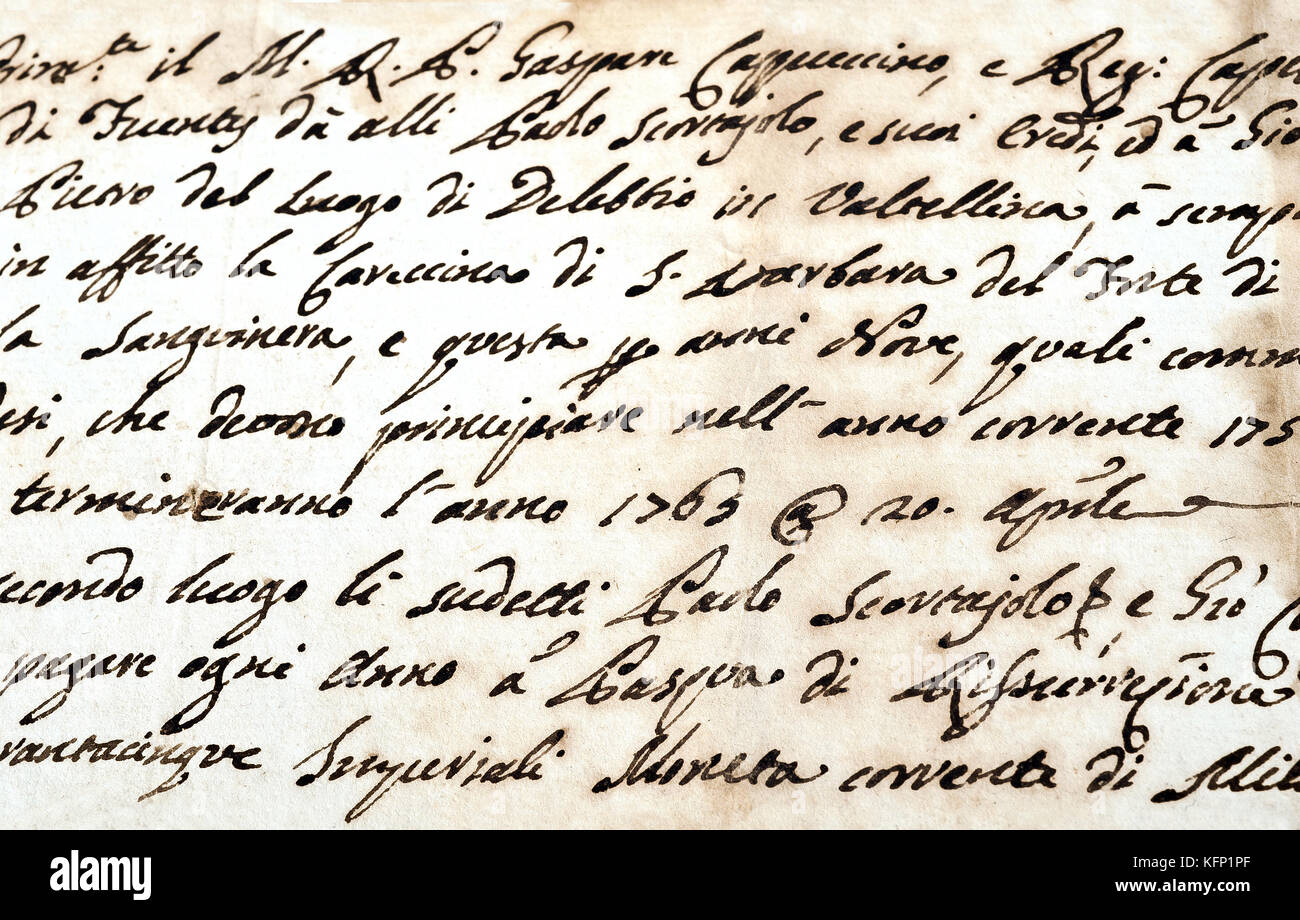 il M. R. P. Gaspare Cappuccino, e Reg: Cape
di Fuentes dà alli Paolo Scortajolo, e suoi Eredi, ed à Gio
Pietro del Luogo di Delebbio in Valtellina, à semp
in affitto la Careccina di S. Barbara del Forte di
la Sanguinera, e questa p anni Nove, quali comm
desi, che devono principiare nell' anno corrente 175
termineranno l' anno 1763 @ 20. Aprile
econdo luogo li sudetti Paolo Scortajolo, e Gio'
pagare ogni Anno à Pasqua di Rissurrezione
rantacinque Imperiali Moneta corrente di Mil
alamy
Image ID: KFP1PF
www.alamy.com